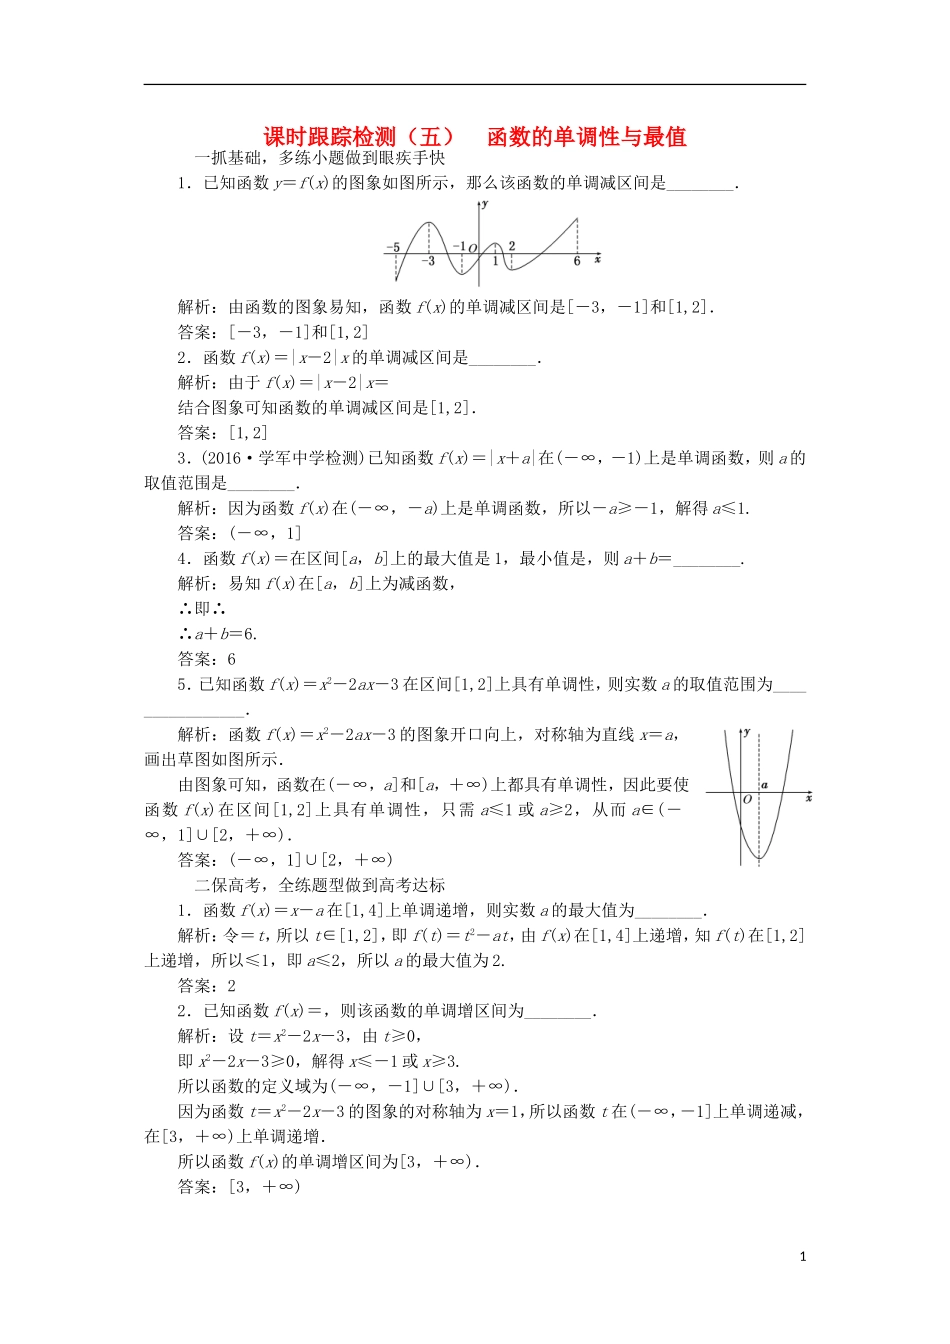 课时跟踪检测（五）　函数的单调性与最值
一抓基础，多练小题做到眼疾手快
1．已知函数 y＝f(x)的图象如图所示，那么该函数的单调减区间是________．
y
-5 -1 O 2
-3 1 6 x
解析：由函数的图象易知，函数 f(x)的单调减区间是[－3，－1]和[1,2]．
答案：[－3，－1]和[1,2]
2．函数 f(x)＝|x－2|x的单调减区间是________．
解析：由于 f(x)＝|x－2|x＝
结合图象可知函数的单调减区间是[1,2]．
答案：[1,2]
3．(2016·学军中学检测)已知函数 f(x)＝|x＋a|在(－∞，－1)上是单调函数，则 a的
取值范围是________．
解析：因为函数 f(x)在(－∞，－a)上是单调函数，所以－a≥－1，解得 a≤1.
答案：(－∞，1]
4．函数 f(x)＝在区间[a，b]上的最大值是 1，最小值是，则 a＋b＝________．
解析：易知 f(x)在[a，b]上为减函数，
∴即∴
∴a＋b＝6.
答案：6
5．已知函数 f(x)＝x²－2ax－3在区间[1,2]上具有单调性，则实数 a的取值范围为____
____________．
解析：函数 f(x)＝x²－2ax－3的图象开口向上，对称轴为直线 x＝a，
画出草图如图所示．
y
a
O x
由图象可知，函数在(－∞，a]和[a，＋∞)上都具有单调性，因此要使
函数 f(x)在区间[1,2]上具有单调性，只需 a≤1 或 a≥2，从而 a∈(－
∞，1]∪[2，＋∞)．
答案：(－∞，1]∪[2，＋∞)
二保高考，全练题型做到高考达标
1．函数 f(x)＝x－a在[1,4]上单调递增，则实数 a的最大值为________．
解析：令＝t，所以 t∈[1,2]，即 f(t)＝t²－at，由 f(x)在[1,4]上递增，知 f(t)在[1,2]
上递增，所以≤1，即 a≤2，所以 a的最大值为 2.
答案：2
2．已知函数 f(x)＝，则该函数的单调增区间为________．
解析：设 t＝x²－2x－3，由 t≥0，
即 x²－2x－3≥0，解得 x≤－1或 x≥3.
所以函数的定义域为(－∞，－1]∪[3，＋∞)．
因为函数 t＝x²－2x－3的图象的对称轴为 x＝1，所以函数 t在(－∞，－1]上单调递减，
在[3，＋∞)上单调递增．
所以函数 f(x)的单调增区间为[3，＋∞)．
答案：[3，＋∞)
1